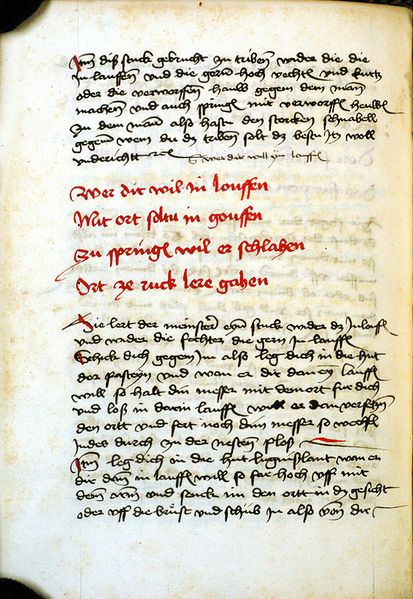 Itm diß stuck gebrucht zu triben wider die die
in lauffen vnd die gern hoch vechtn vnd kurtz
oder die verworffen haulb gegem dem man
machenn vnd auch springn mit verworffn heulbn
zu dem man also hastu den storcken schnabell
gegenn wem du dz triben solt dz bestu Iz woll
vnderichtt
Wer dir will yn louffn
Wer dir wil in louffen
Mit ort soltu in gouffen
Zu springn wil er schlahen
Ort ze ruck lere gahen
Hie lert der meinster eyn stuck wider dz Inlauffn
vnd wider die fechter die gern In lauffn
Schick dich gegen im also leg dich in die hut
der pasteyn vnd wan er dir dan ey lauffn
will so halt din messer mit dem ort fur dich
vnd loß in darin lauffn will er dan versetzen
den ortt vnd fert noch dim messer so wechssel
Indes durch zu der nesten ploß
Itm leg dich in die hut luginslant wan er
dir dan in lauffn will so far hoch vff mit
dem arm vnd senck im den ortt in dz gesicht
oder vff die brust vnd schub in also von dir